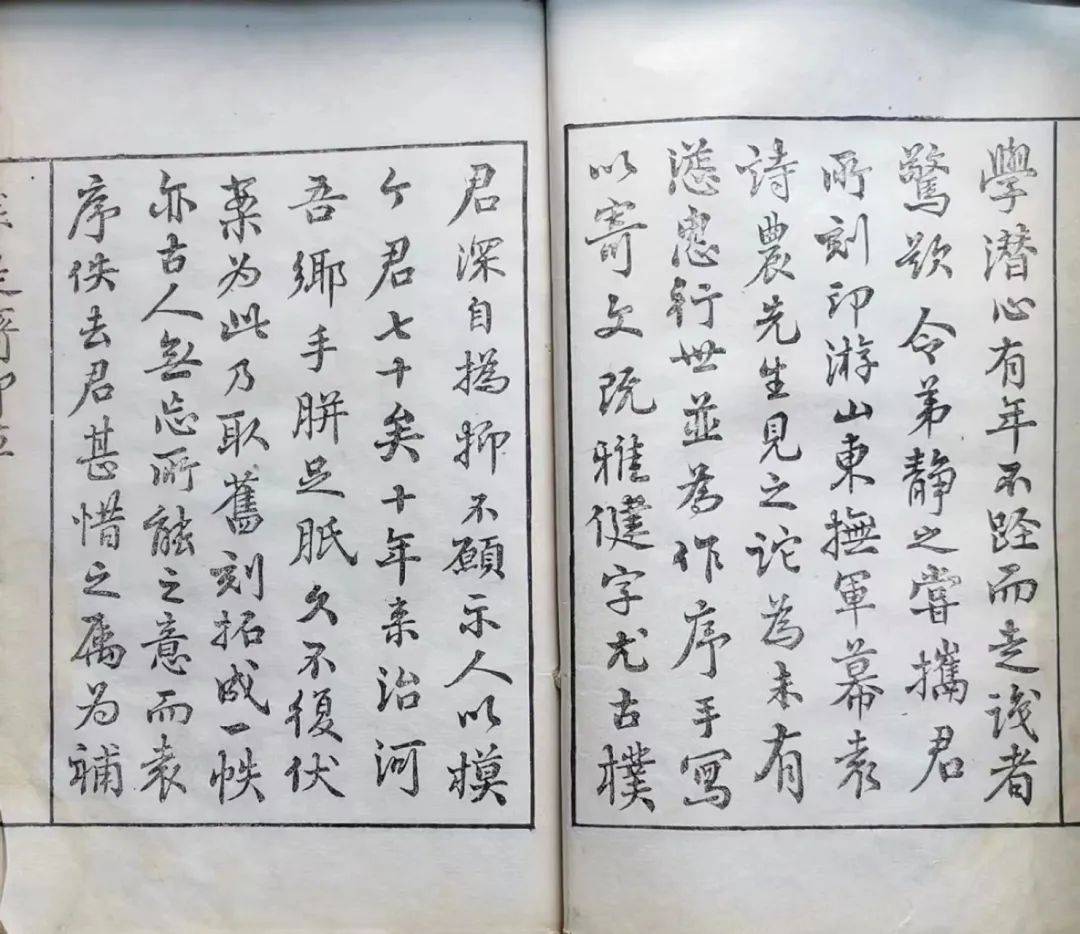 學潛心有年不踁而走識者
驚歎令弟靜之嘗攜君
所刻印游山東撫軍幕袁
詩農先生見之詫為未有
慫恿行世並為作序手寫
以寄文既雅健字尤古樸
君深自撝抑不願示人以模
今君七十矣十年来治河
吾鄉手胼足胝久不復伏
案为此乃取舊刻拓成一帙
亦古人無忘所能之意而袁
序佚去君甚惜之属为補